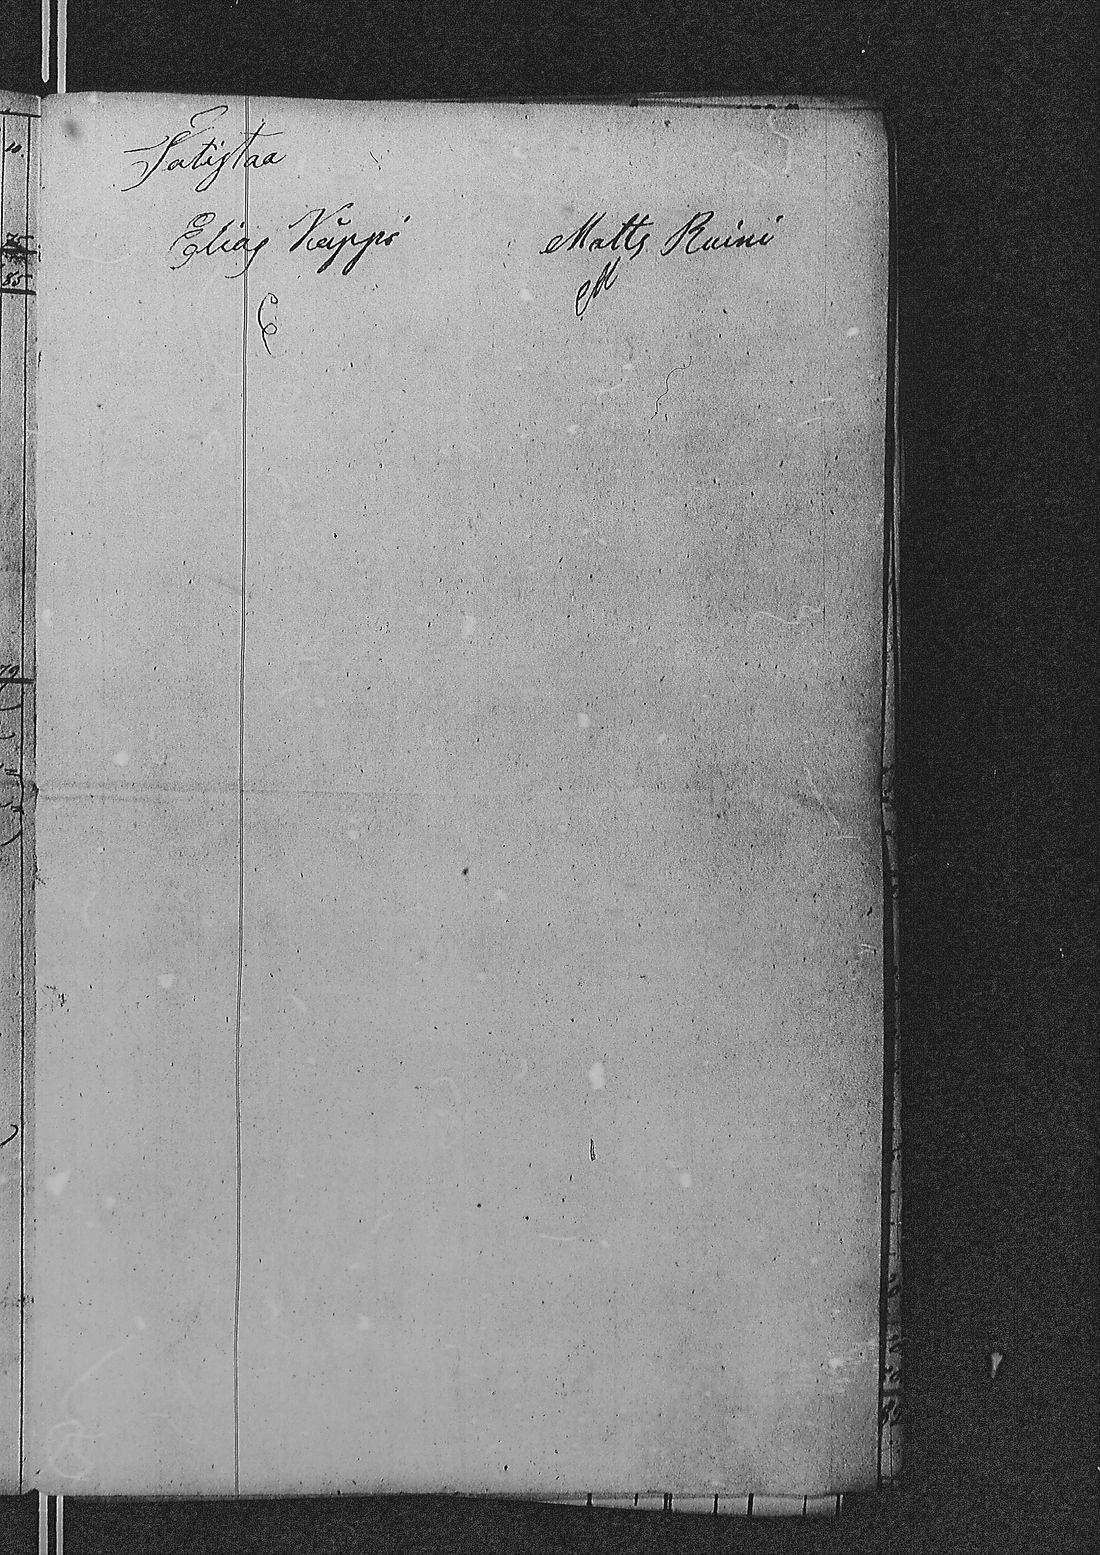 Satistaa
Elias Käppi Matts Ruini
E M